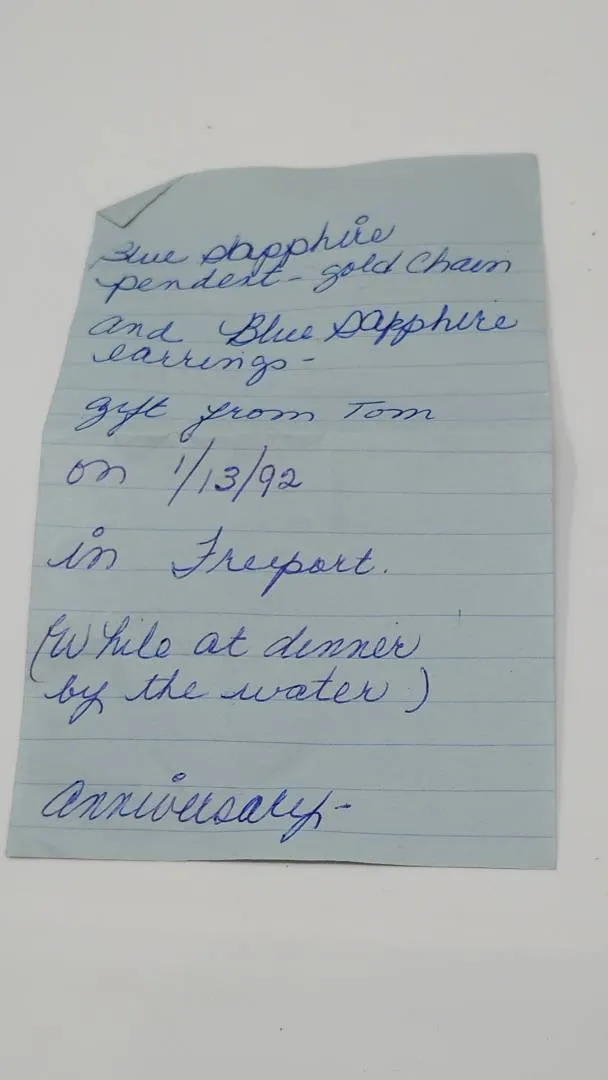 Blue Sapphire
pendent - gold Chain
and Blue Sapphire
earrings -
gift from Tom
on 1/13/92
in Freeport.
(While at dinner
by the water)
Anniversary -